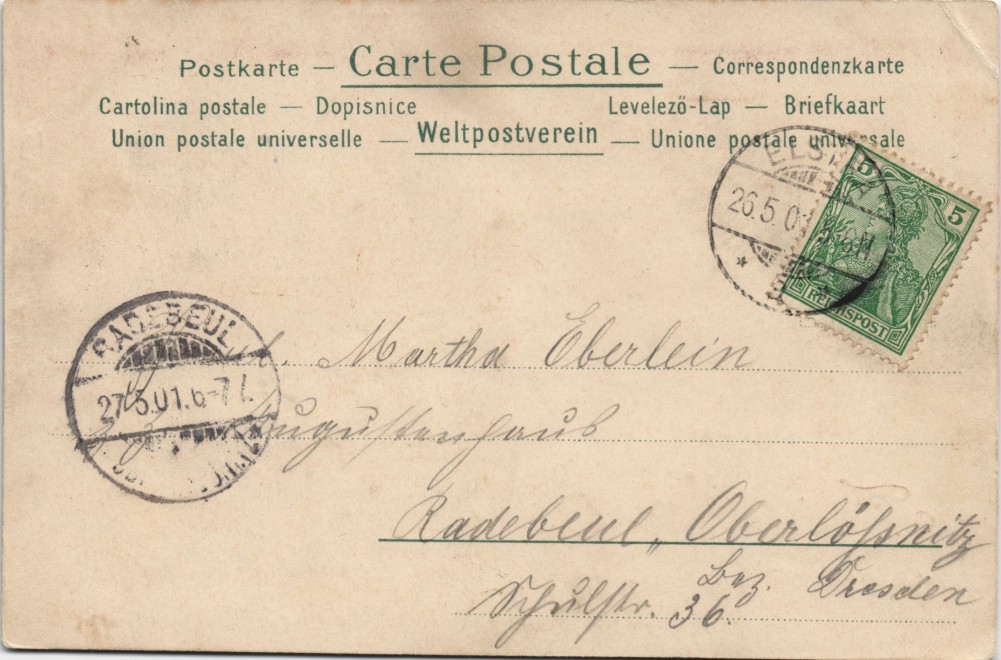 Postkarte — Carte Postale — Correspondenzkarte
Cartolina postale — Dopisnice Levelező-Lap — Briefkaart
Union postale universelle — Weltpostverein — Unione postale universale
5 5
REICHSPOST
26.5.01
RADEBEUL
27.5.01.6-7
Martha Eberlein
z. Z. Augustenhaus
Radebeul „ Oberlößnitz
Bez. Dresden
Schulstr. 36.